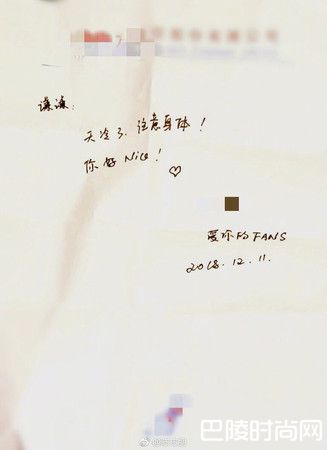 谦谦：
天冷了，注意身体！
你好 Nice！
爱你的 FANS
2018.12.11.
巴陵时尚网